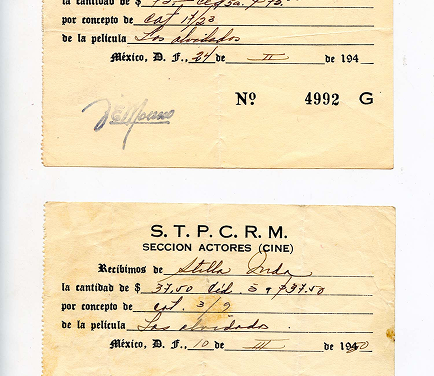 la cantidad de $
por concepto de cat 17/23
de la película Los olvidados
México, D. F., 24 de II de 194
Nº 4992 G
S. T. P. C. R. M.
SECCION ACTORES (CINE)
Recibimos de Stilla Inda
la cantidad de $ 37.50
por concepto de cat. 3/9
de la película Los olvidados.
México, D. F., 10 de III de 1950